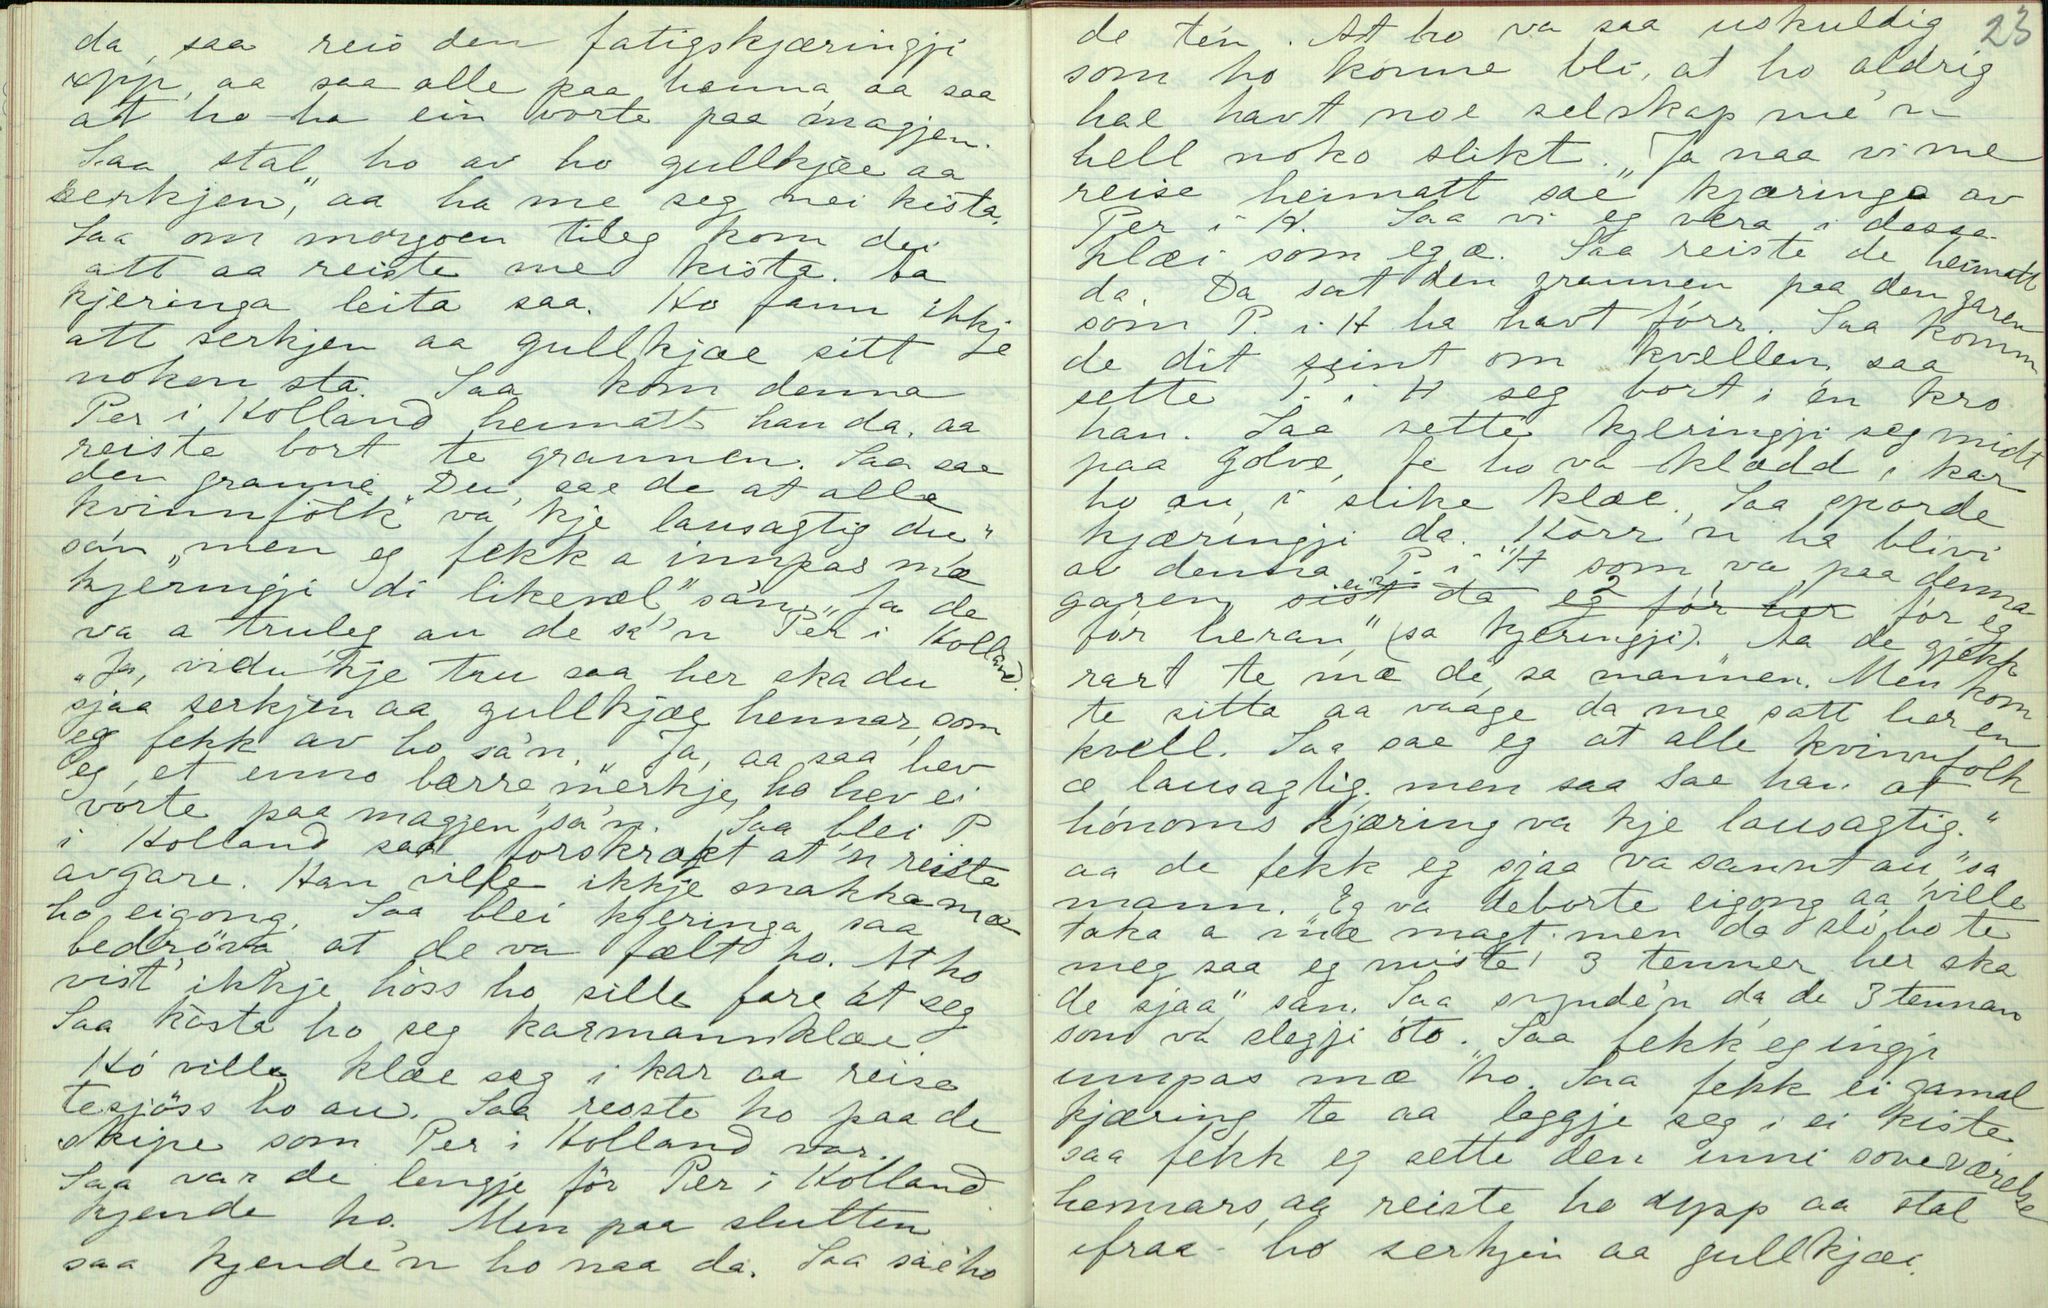 da, saa reis den fatigskjæringji
opp, aa saa alle paa henna, aa saa
at ho ha ein vorte paa magjen.
Saa stal ho av ho gullkjæe aa
serkjen," aa ha me seg nei kista.
Saa om morgoen tileg kom dei
att aa reiste me kista. Ja
kjeringa leita saa. Ho fann ikkje
att serkjen aa gullkjæe sitt
noken sta. Saa kom denna
Per i Holland heimatt han da, aa
reiste bort te grannen. Saa sae
den granne "Du sae de at alle
kvinnfolk va kje lausagtig du"
sa'n "men eg fekk a innpas mæ
kjæringji di likevæl," sa'n. "Ja de
va a truleg au de sa'n Per i Holland.
"Ja, vidu kje tru saa her ska du
sjaa serkjen aa gullkjæe hennar, som
eg fekk av ho, sa'n. "Ja, aa saa hev
eg et enno bærre merkje, ho hev ei
vorte paa magjen" sa'n. Saa blei P
i Holland saa forskrækt at'n reiste
avgare. Han ville ikkje snakka mæ
ho, eigong. Saa blei kjeringa saa
bedrøva, at de va fælt ho. At ho
vist' ikkje høss ho sille fare at seg
Saa kosta ho seg karmannklæe
Ho ville klæe seg i kar aa reise
tesjøss ho au. Saa reiste ho paa de
skipe som Per i Holland var.
Saa var de lengje før Per i Holland
kjende ho. Men paa slutten
saa kjende'n ho naa da. Saa sae ho
23
de te'n. At ho va saa uskuldig
som ho konne bli, at ho aldrig
hae havt noe selskap me'n
hell noko slikt. "Ja naa vi me
reise heimatt" sae kjæringa av
Per i H. Saa vi eg vera i dessa
klæi som eg æ. Saa reiste de heimatt
da. Da sat den grannen paa den garen
som P. i H ha havt førr. Saa komm
de dit seint om kvellen, saa
sette P. i H seg bort i en kro
han. Saa sette kjeringji seg midt
paa golve, fe ho va klædd i kar
ho au, i slike klæe. Saa sporde
kjæringji da. "Korr'n ha blivi
av denna P. i H som va paa denna
garen, sist da eg 2 før her før eg
før heran," (sa kjeringji). "Aa de gjekk
rart te mæ de, sa mannen. Men kom
te sitta aa vaage da me satt her en
kvell. Saa sae eg at alle kvinnfolk
æ lausagtig, men saa sae han at
honoms kjæring va kje lausagtig."
aa de fekk eg sjaa va sannt au," sa
mann. "Eg va deborte eigong aa ville
taka a mæ magt, men da slo ho te
meg saa eg miste 3 tenner, her ska
de sjaa," sa'n. Saa synde'n da de 3 tennan
som va slegji oto. "Saa fekk eg ingji
innpas mæ ho. Saa fekk ei gamal
kjæring te aa leggje seg i ei kiste
saa fekk eg sette den inni soveværelse
hennars, aa reiste ho opp aa stal
ifraa ho serkjin aa gullkjæi.